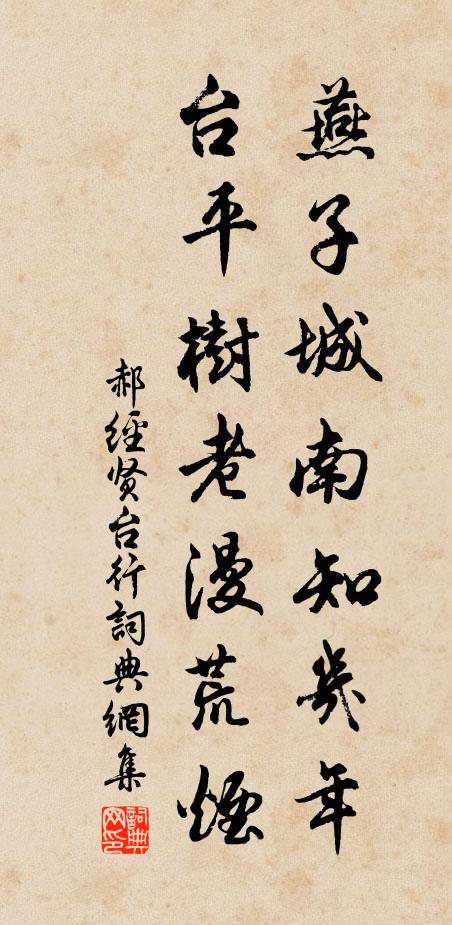 燕子城南知幾年
台平樹老漫荒煙
郝經贤台行詞典網集
詞典网印